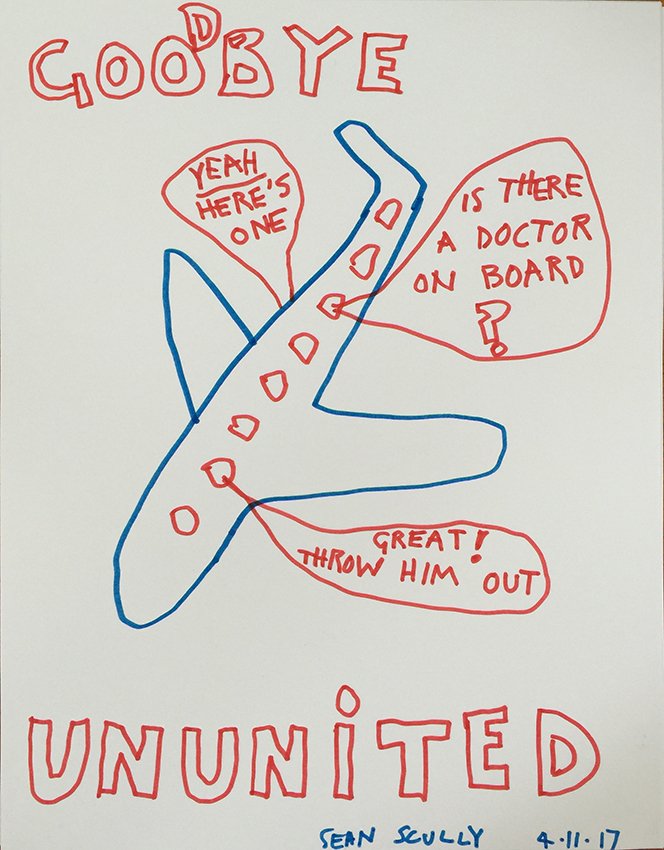 GOODBYE
YEAH
HERE'S
ONE
IS THERE
A DOCTOR
ON BOARD
?
GREAT!
THROW HIM OUT
UNUNITED
SEAN SCULLY 4.11.17